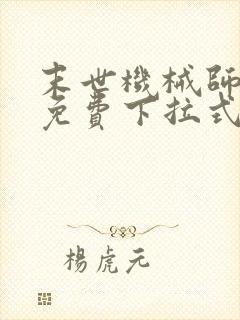 末世機械師
免費下拉式
楊虎元